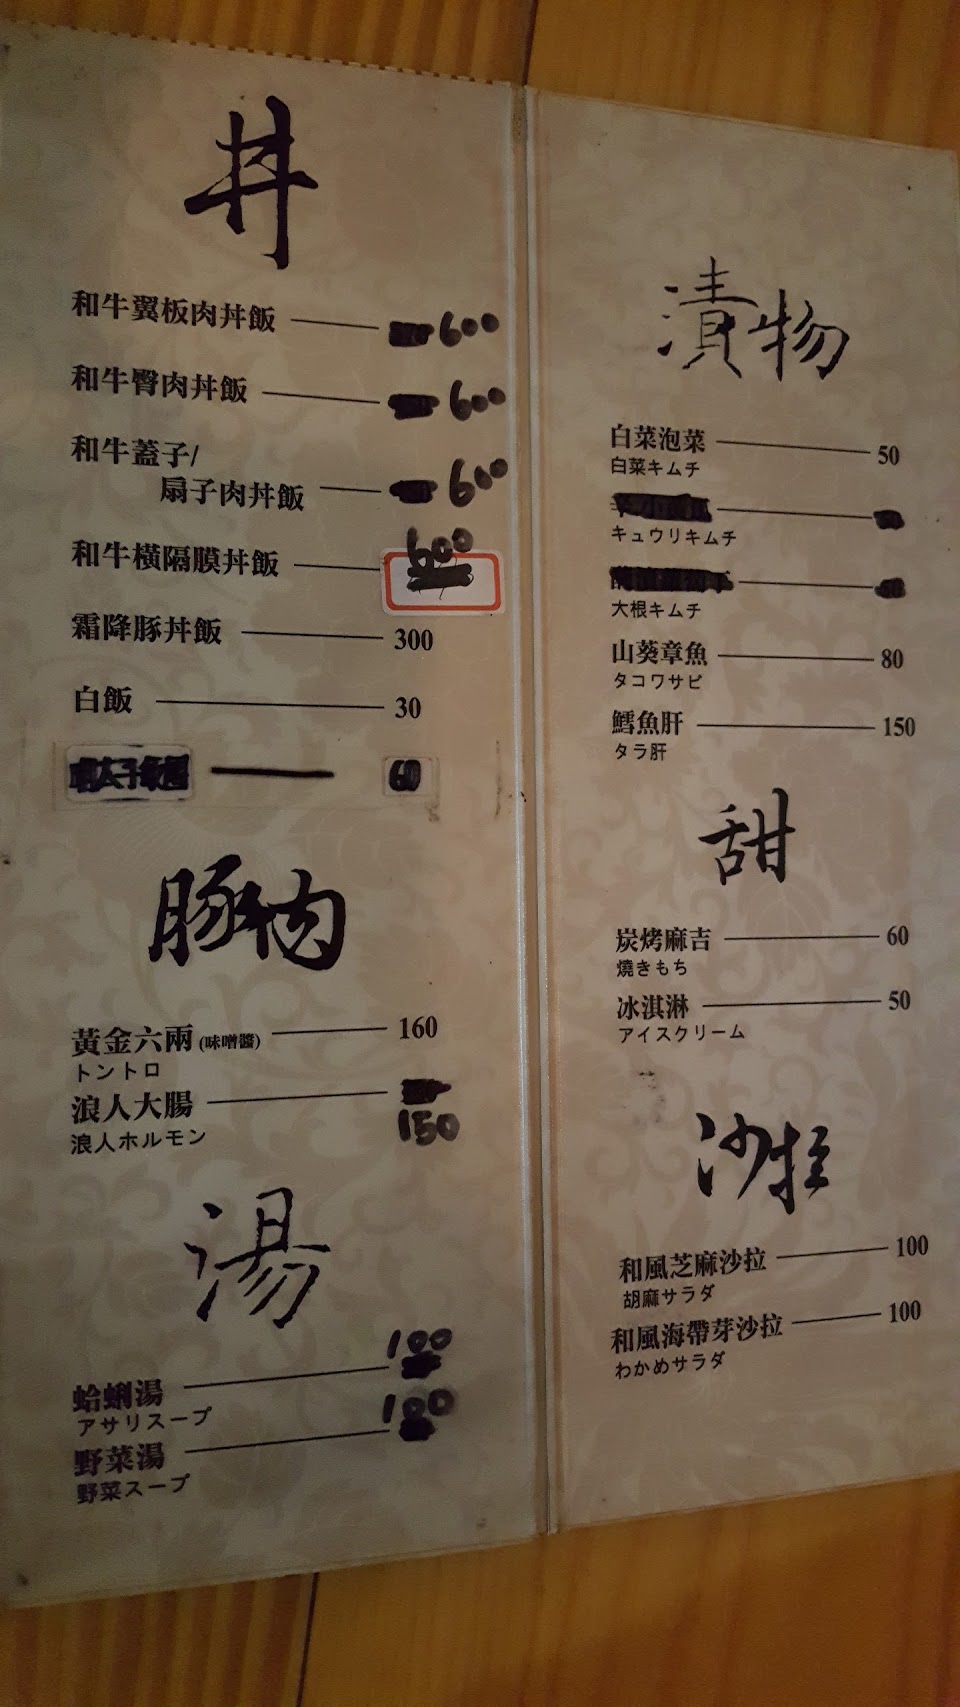 丼
和牛翼板肉丼飯 600
和牛臀肉丼飯 600
和牛蓋子/
扇子肉丼飯 600
和牛橫隔膜丼飯 600
霜降豚丼飯 300
白飯 30
60
豚肉
黃金六兩(味噌醬) 160
トントロ
浪人大腸 150
浪人ホルモン
湯
蛤蜊湯 100
アサリスープ
野菜湯 100
野菜スープ
漬物
白菜泡菜 50
白菜キムチ
キュウリキムチ
大根キムチ
山葵章魚 80
タコワサビ
鱈魚肝 150
タラ肝
甜
炭烤麻吉 60
燒きもち
冰淇淋 50
アイスクリーム
沙拉
和風芝麻沙拉 100
胡麻サラダ
和風海帶芽沙拉 100
わかめサラダ